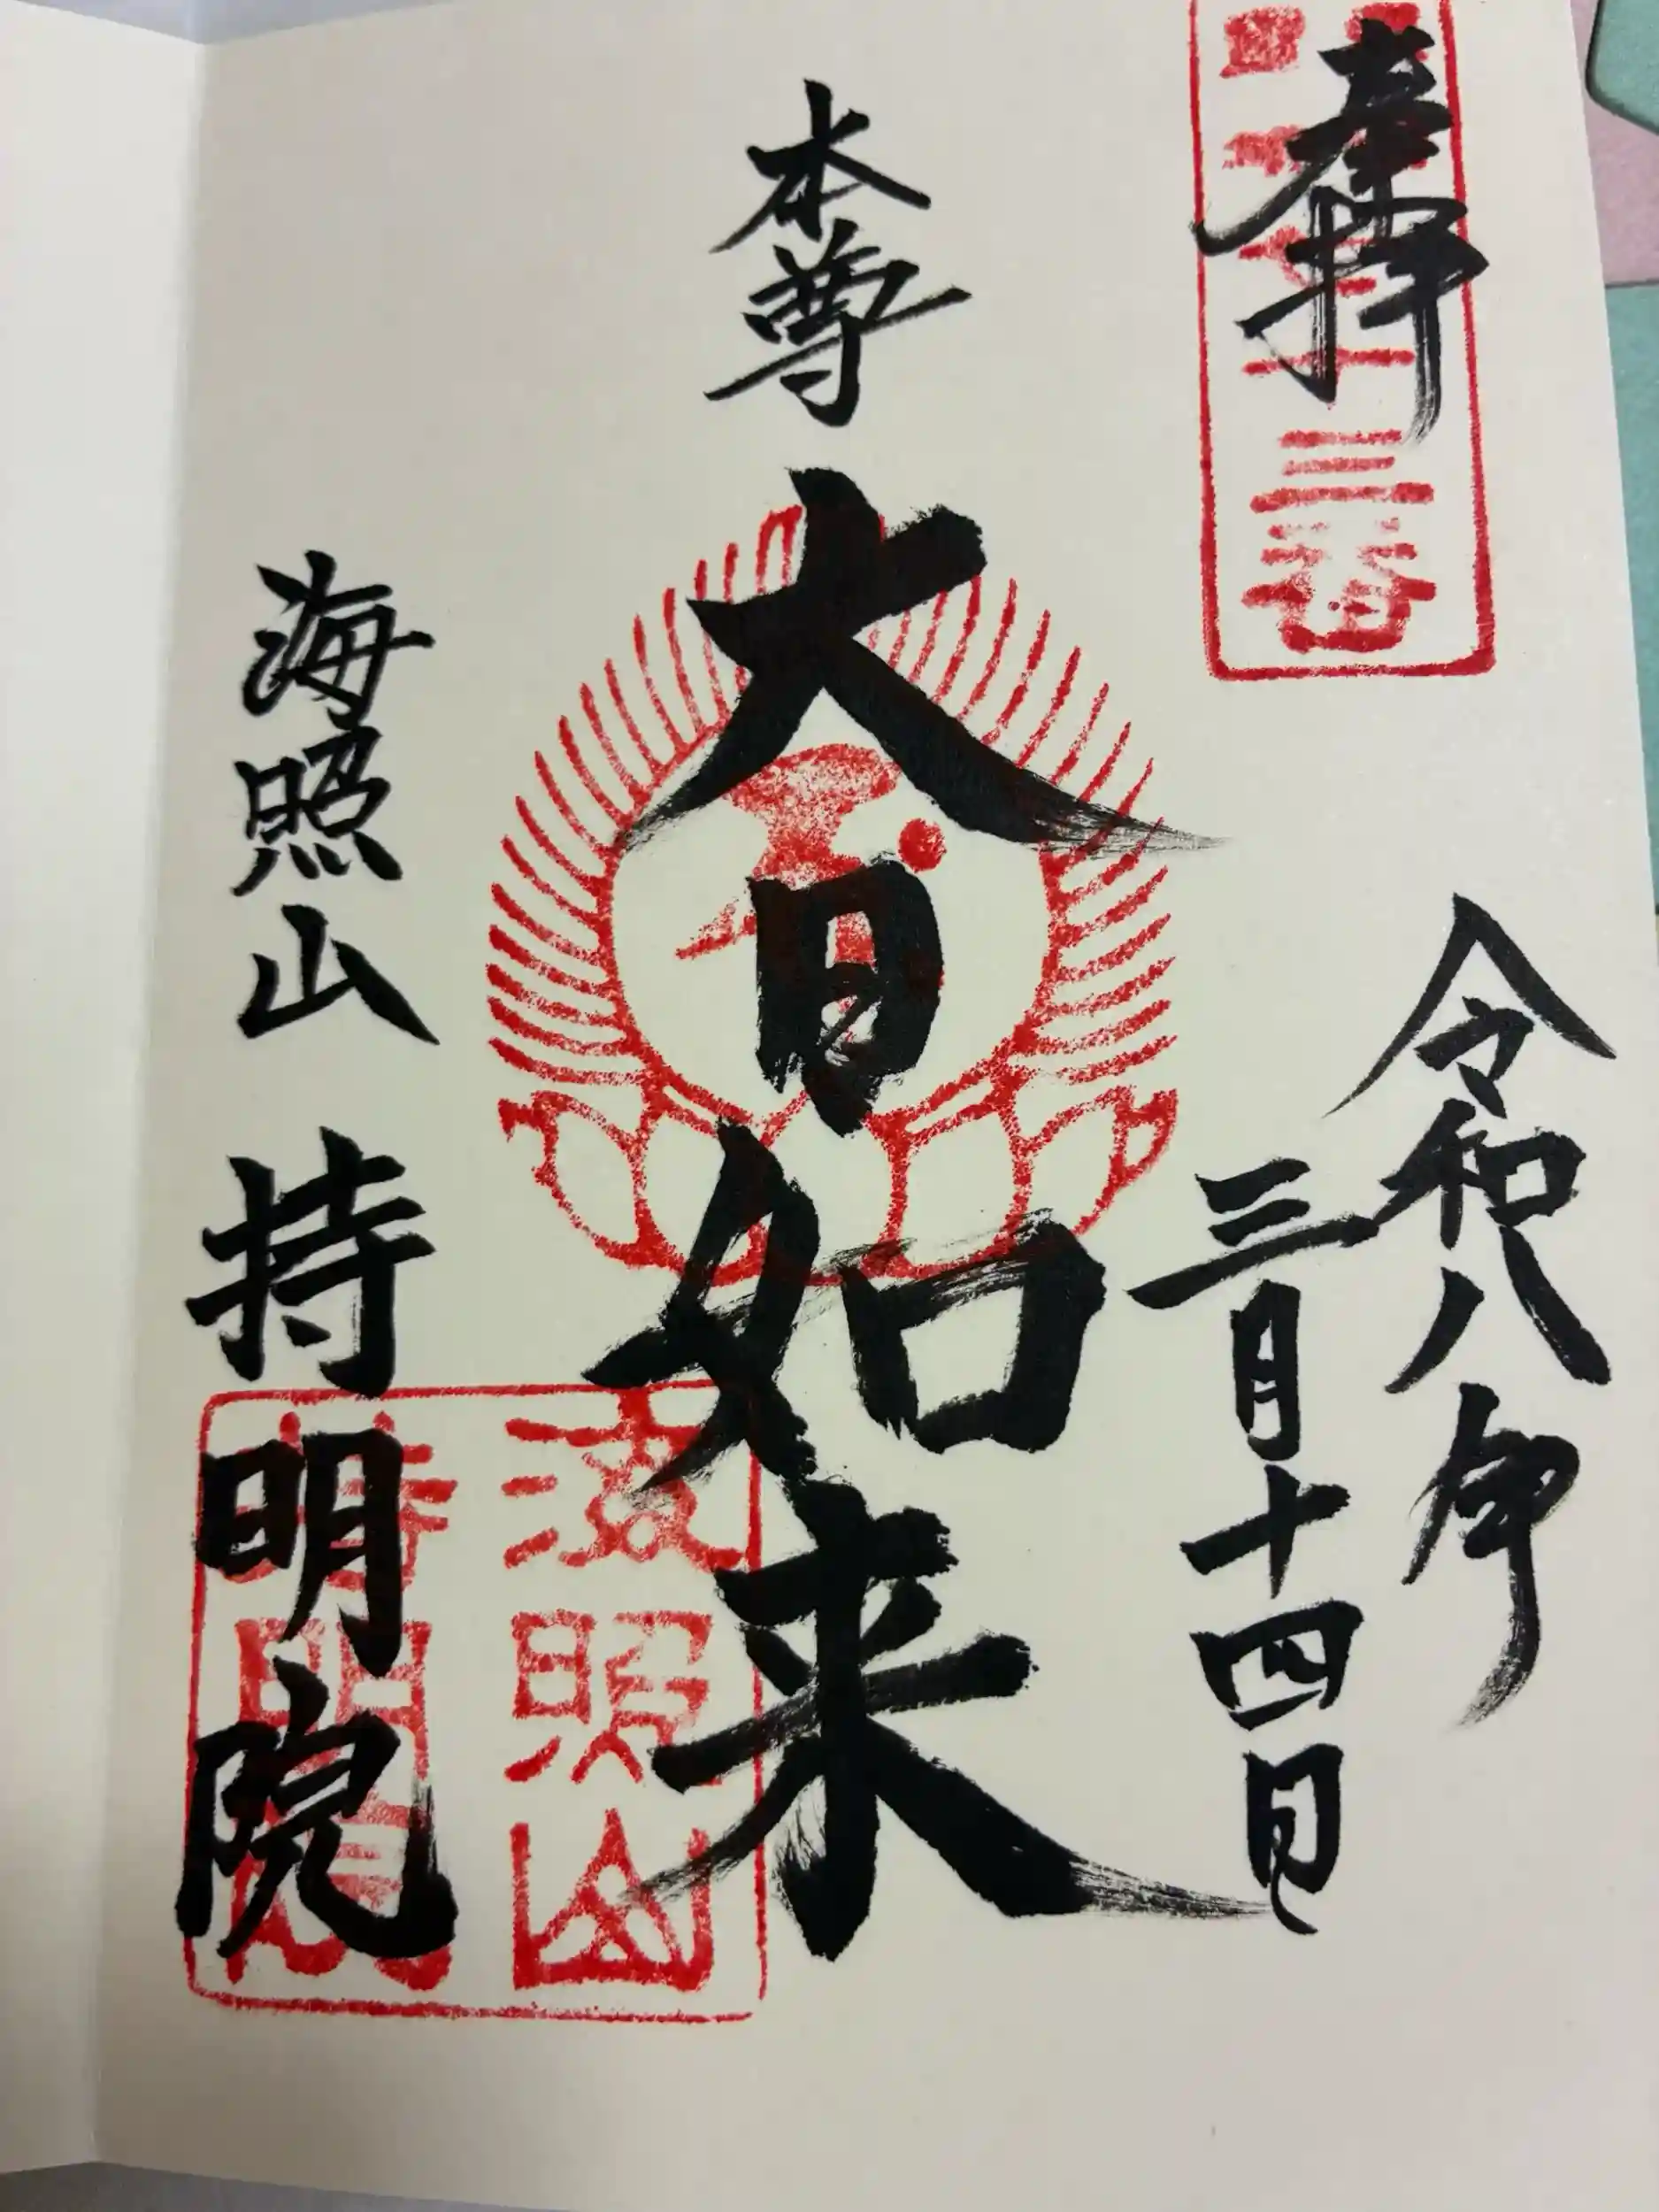 奉拝
令和八年
三月十四日
本尊
大日如来
海照山 持明院
三番
海照山
持明院